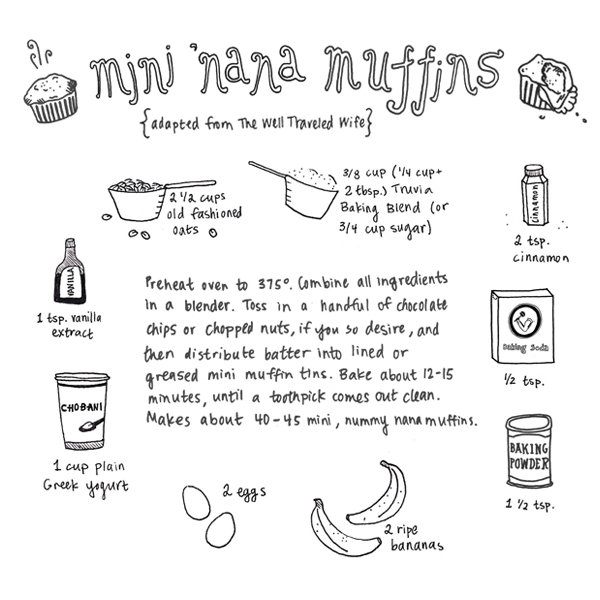 mini 'nana muffins
{adapted from The Well Traveled Wife}
2 1/2 cups
old fashioned
oats
3/8 cup (1/4 cup +
2 tbsp.) Truvia
Baking Blend (or
3/4 cup sugar)
cinnamon
2 tsp.
cinnamon
VANILLA
1 tsp. vanilla
extract
Preheat oven to 375°. Combine all ingredients
in a blender. Toss in a handful of chocolate
chips or chopped nuts, if you so desire, and
then distribute batter into lined or
greased mini muffin tins. Bake about 12-15
minutes, until a toothpick comes out clean.
Makes about 40-45 mini, nummy nana muffins.
Baking Soda
1/2 tsp.
CHOBANI
1 cup plain
Greek yogurt
BAKING
POWDER
1 1/2 tsp.
2 eggs
2 ripe
bananas